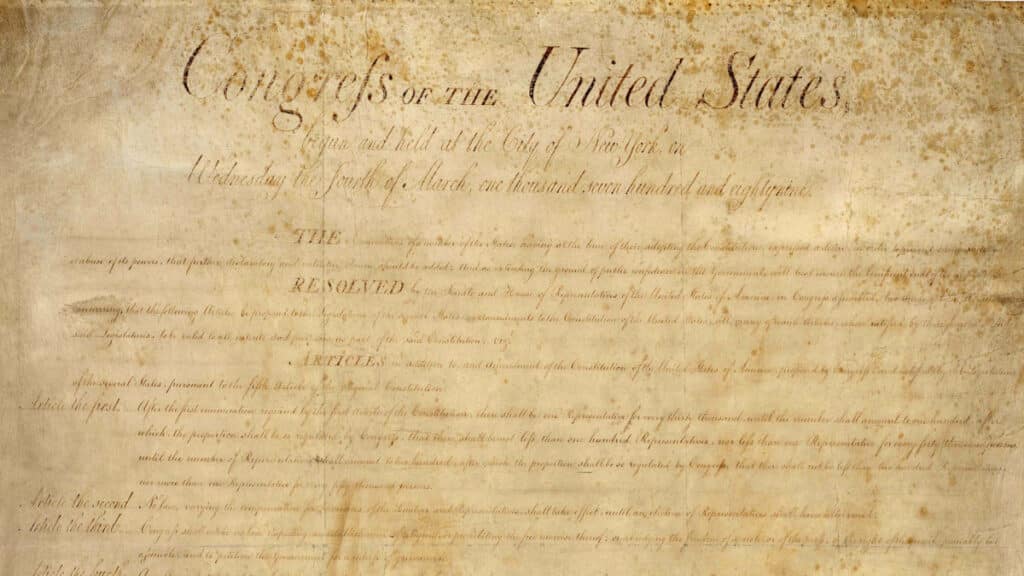 Congreſs OF THE United States,
begun and held at the City of New York, on
Wednesday the Fourth of March, one thousand seven hundred and eighty nine.
THE Conventions of a number of the States, having at the time of their adopting the Constitution, expreſsed a desire, in order to prevent
abuse of its powers, that further declaratory and restrictive clauses should be added: And as extending the ground of public confidence in the Government, will best ensure the beneficent ends of its
RESOLVED by the Senate and House of Representatives of the United States of America, in Congreſs aſsembled, two thirds of
concurring, that the following Articles be proposed to the Legislatures of the several States, as amendments to the Constitution of the United States, all, or any of which Articles, when ratified by three fourths of the
said Legislatures, to be valid to all intents and purposes, as part of the said Constitution; viz.
ARTICLES in addition to, and Amendment of the Constitution of the United States of America, proposed by Congreſs, and ratified by the Legislatures
of the several States, pursuant to the fifth Article of the original Constitution.
Article the first. After the first enumeration required by the first Article of the Constitution, there shall be one Representative for every thirty thousand, until the number shall amount to one hundred, after
which, the proportion shall be so regulated by Congreſs, that there shall be not leſs than one hundred Representatives, nor leſs than one Representative for every forty thousand persons,
until the number of Representatives shall amount to two hundred, after which the proportion shall be so regulated by Congreſs, that there shall not be leſs than two hundred Representatives,
nor more than one Representative for every fifty thousand persons.
Article the second. No law, varying the compensation for the services of the Senators and Representatives, shall take effect, until an election of Representatives shall have intervened.
Article the third. Congreſs shall make no law respecting an establishment of religion, or prohibiting the free exercise thereof; or abridging the freedom of speech, or of the preſs; or the right of the people peaceably to
aſsemble, and to petition the Government for a redreſs of grievances.
Article the fourth. A